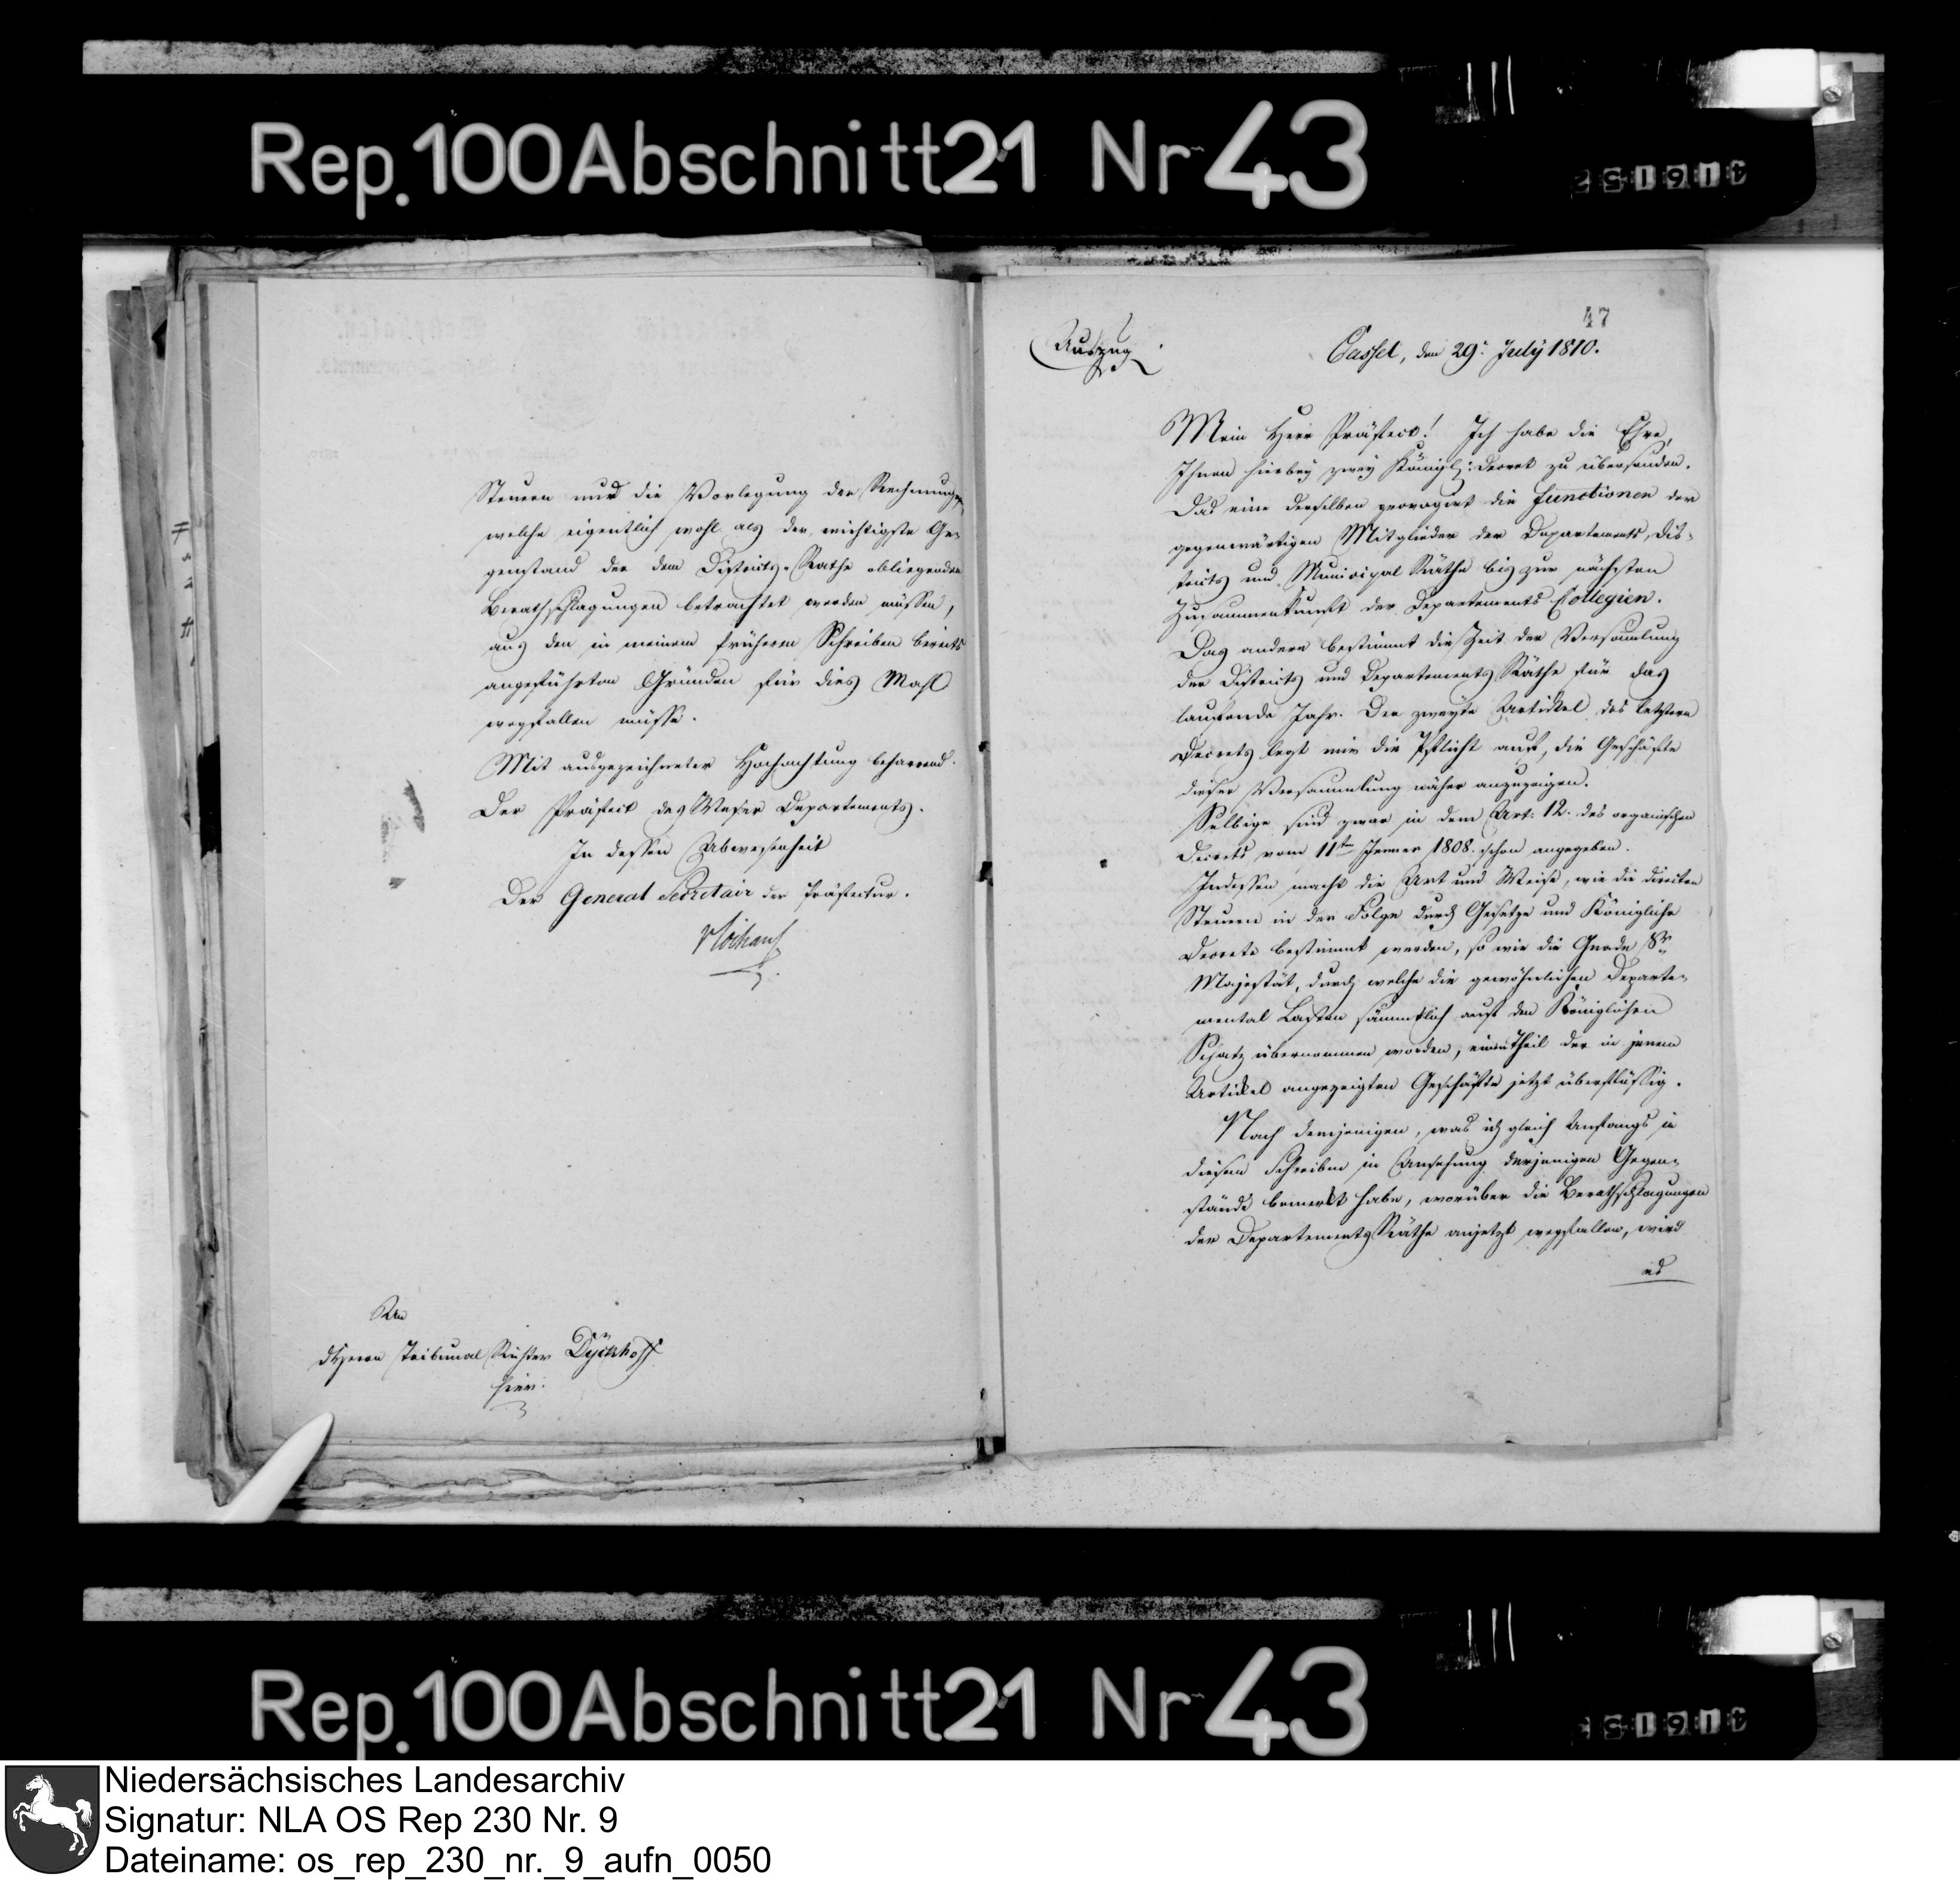 Rep. 100 Abschnitt 21 Nr 43
Steuern und die Vorlegung der Rechnungen
welche eigentlich wohl als der wichtigste Ge-
genstand der dem Districts-Rathe obliegenden
Berathschlagungen betrachtet werden müssen,
aus den in meinem früheren Schreiben bereits
angeführten Gründen für dies Mahl
wegfallen müsse.
Mit ausgezeichneter Hochachtung beharrend.
Der Präfect des Weser Departements.
In dessen Abwesenheit
Der General Secretair der Präfectur.
An
d Herrn Tribunal Richter Dyckhoff
hier.
47
Auszug
Cassel, den 29. July 1810.
Mein Herr Präfect! Ich habe die Ehre,
Ihnen hierbey zwey Königl: Decret zu übersenden.
Das eine derselben prorogirt die Functionen der
gegenwärtigen Mitglieder der Departements, Dis-
tricts und Municipal Räthe bis zur nächsten
Zusammenkunft der Departements Collegien.
Das andere bestimmt die Zeit der Versamlung
der Districts und Departements Räthe für das
laufende Jahr. Der zweyte Artickel des letztern
Decrets legt mir die Pflicht auf, die Geschäfte
dieser Versammlung näher anzuzeigen.
Selbige sind zwar in dem Art: 12. des organischen
Decrets vom 11ten Jenner 1808. schon angegeben.
Indessen macht die Art und Weise, wie die directen
Steuern in der Folge durch Gesetze und Königliche
Decrete bestimmt werden, so wie die Gnade Sr
Majestät, durch welche die gewöhnlichen Departe-
mental Lasten sämmtlich auf den Königlichen
Schatz übernommen worden, einen Theil der in jenem
Artickel angezeigten Geschäfte jetzt überflüssig.
Nach demjenigen, was ich gleich Anfangs in
diesem Schreiben in Ansehung derjenigen Gegen-
stände bemerckt habe, worüber die Berathschlagungen
der Departements Räthe anjetzt wegfallen, wird
es
Rep. 100 Abschnitt 21 Nr 43
Niedersächsisches Landesarchiv
Signatur: NLA OS Rep 230 Nr. 9
Dateiname: os_rep_230_nr._9_aufn_0050